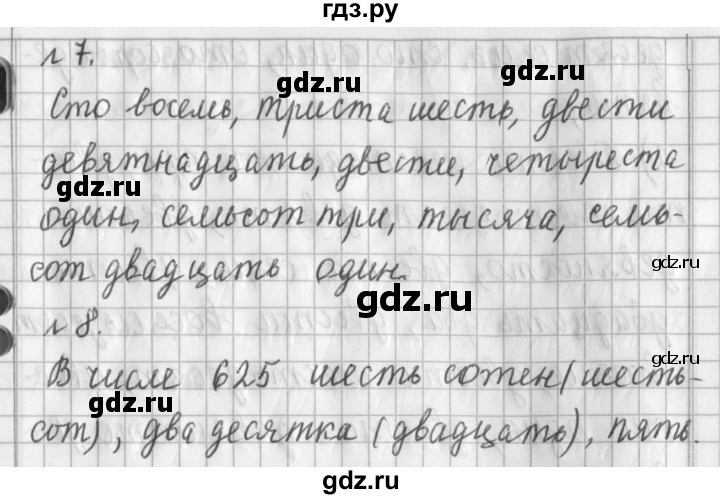 гдз.ру
№ 7.
Сто восемь, триста шесть, двести
девятнадцать, двести, четыреста
один, семьсот три, тысяча, семь-
сот двадцать один.
№ 8.
В числе 625 шесть сотен (шесть-
сот), два десятка (двадцать), пять.
gdz.ru
gdz.ru
gdz.ru
gdz.ru
gdz.ru
gdz.ru
gdz.ru
gdz.ru
gdz.ru